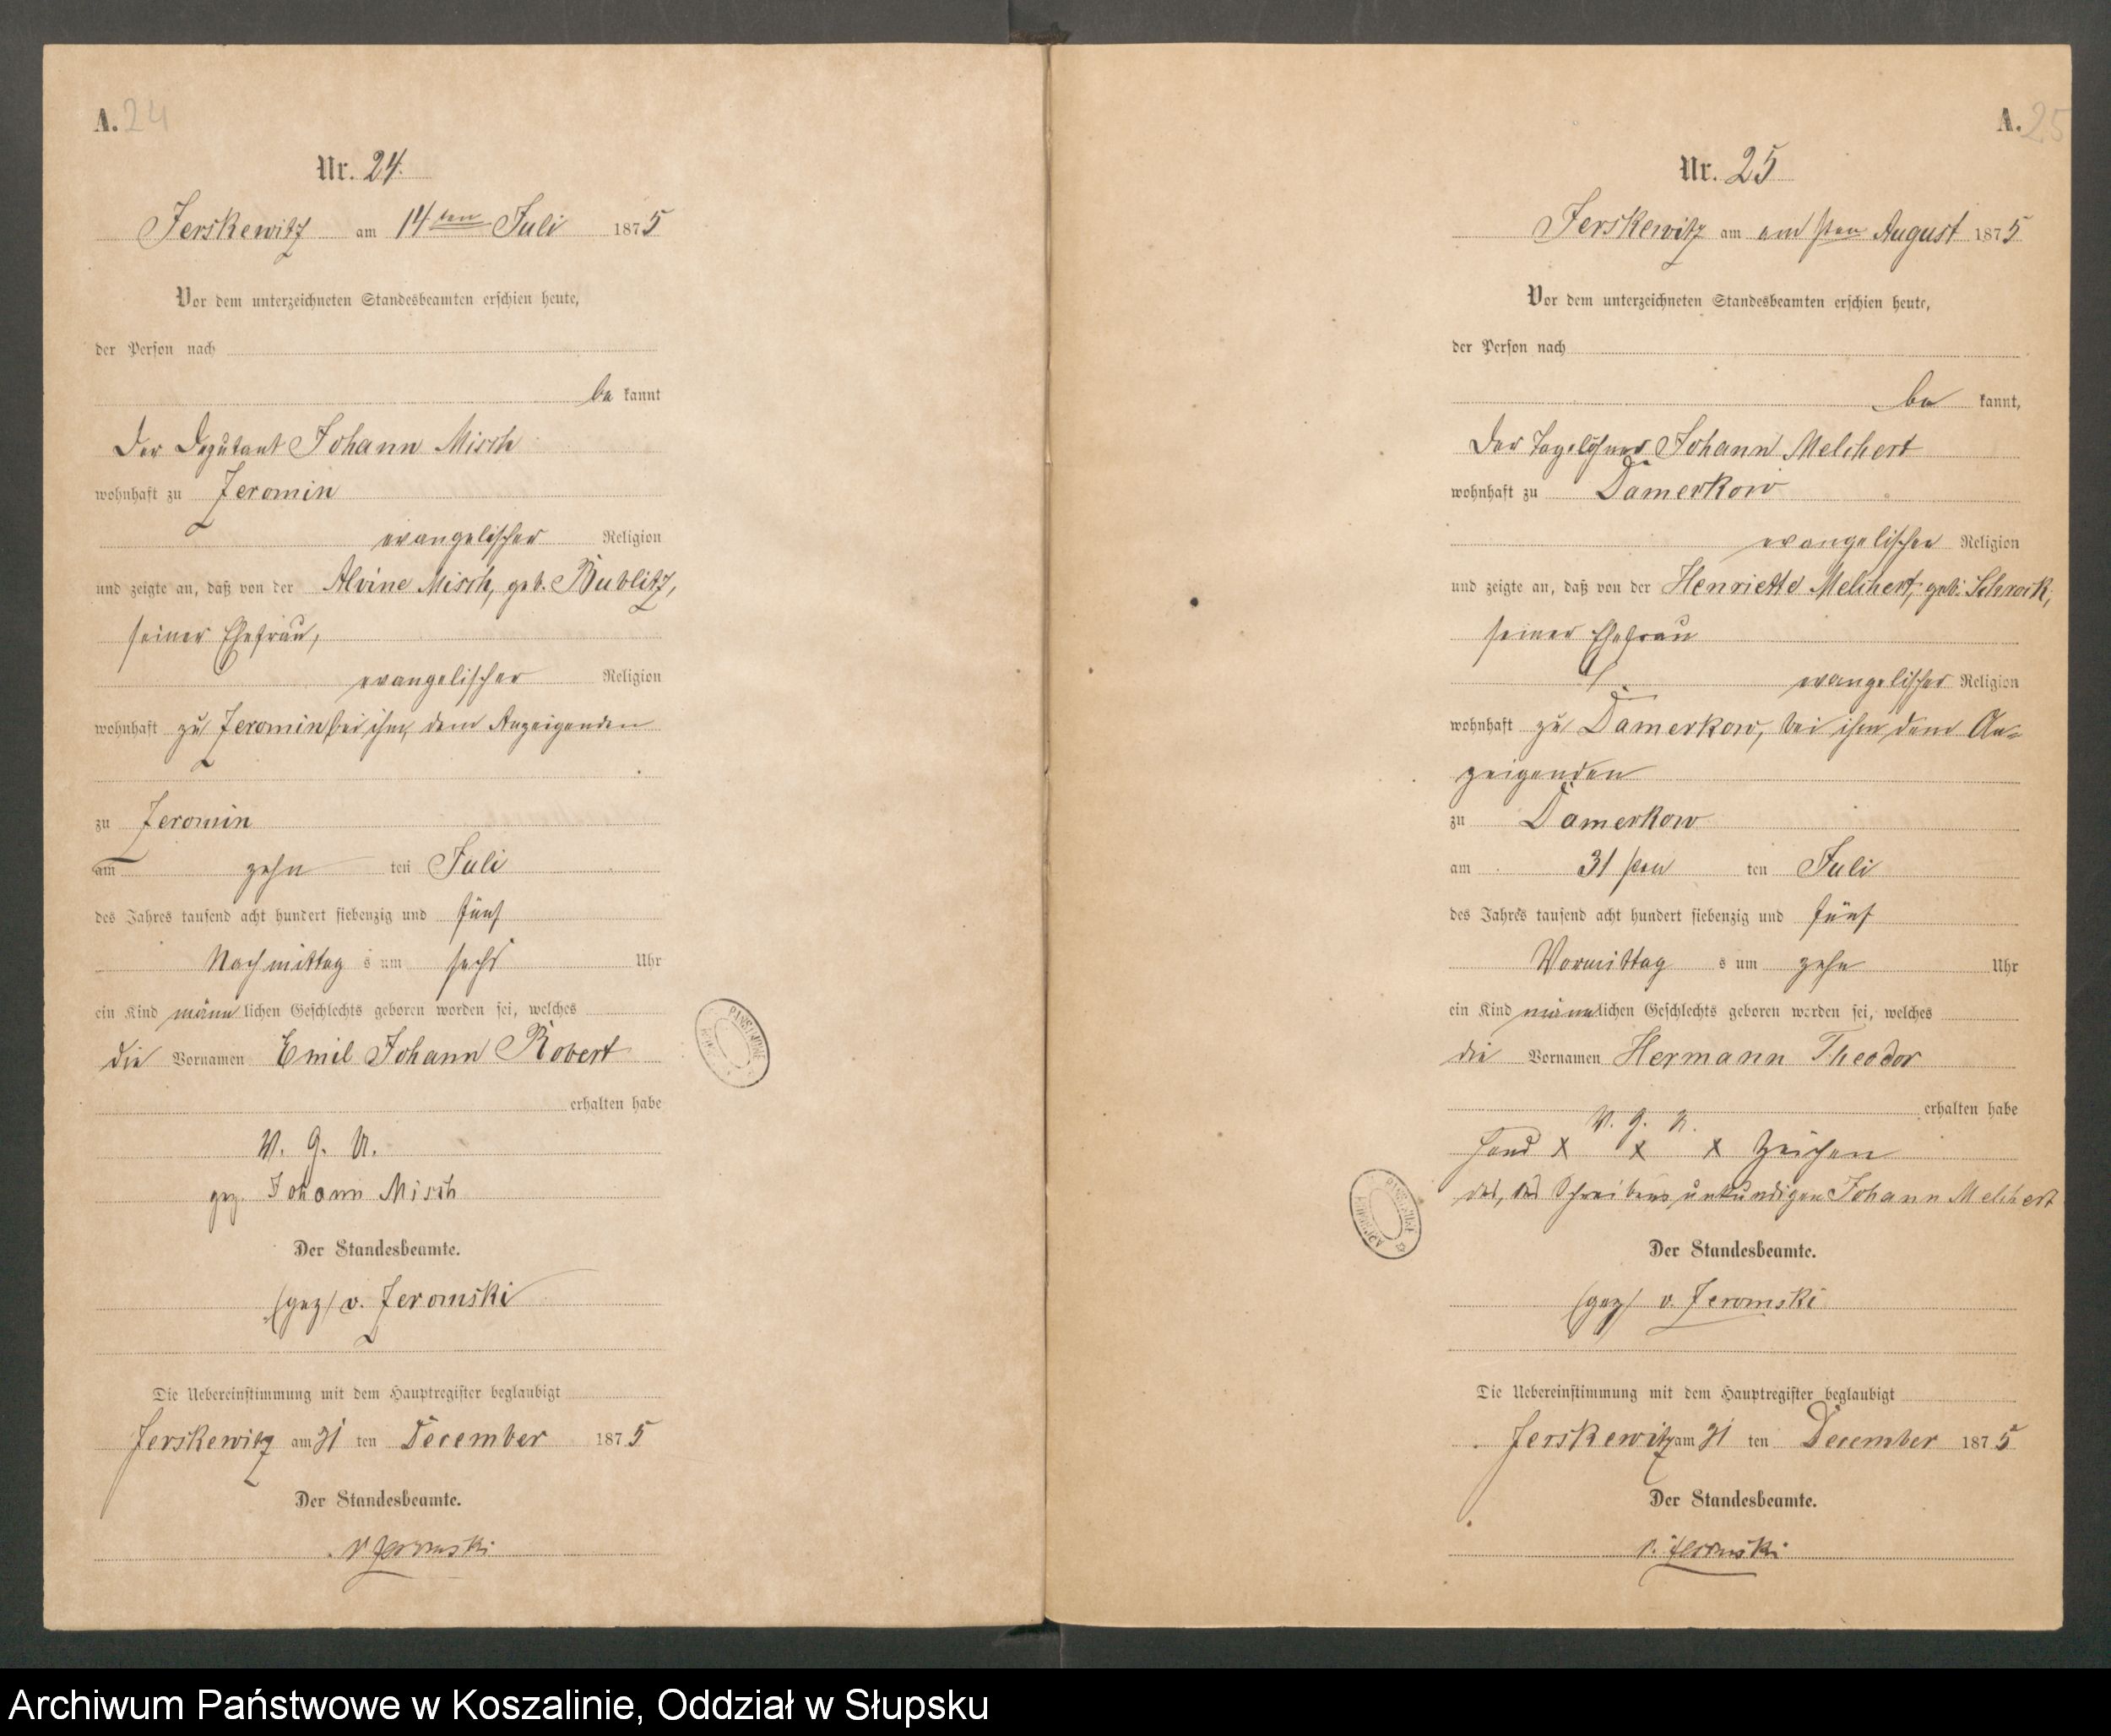 A. 24
Nr. 24.
Jerskewitz am 14ten Juli 1875
Vor dem unterzeichneten Standesbeamten erschien heute,
der Person nach
be kannt
Der Deputant Johann Misch
wohnhaft zu Jeromin
evangelischer Religion
und zeigte an, daß von der Alvine Misch, geb. Bublitz,
seiner Ehefrau,
evangelischer Religion
wohnhaft zu Jeromin bei ihm, dem Anzeigenden
zu Jeromin
am zehn ten Juli
des Jahres tausend acht hundert siebenzig und fünf
Nachmittag s um sechs Uhr
ein Kind männ lichen Geschlechts geboren worden sei, welches
die Vornamen Emil Johann Robert
erhalten habe
V. g. u.
gez. Johann Misch
Der Standesbeamte.
(gez) v. Jeromski
Die Uebereinstimmung mit dem Hauptregister beglaubigt
Jerskewitz am 31 ten December 1875
Der Standesbeamte.
v Jeromski
A. 25
Nr. 25
Jerskewitz am am 1sten August 1875
Vor dem unterzeichneten Standesbeamten erschien heute,
der Person nach
be kannt,
Der Tagelöhner Johann Melchert
wohnhaft zu Damerkow
evangelischer Religion
und zeigte an, daß von der Henriette Melchert, geb. Schrock,
seiner Ehefrau
evangelischer Religion
wohnhaft zu Damerkow, bei ihm dem An-
zeigenden
zu Damerkow
am 31 sten ten Juli
des Jahres tausend acht hundert siebenzig und fünf
Vormittag s um zehn Uhr
ein Kind männlichen Geschlechts geboren worden sei, welches
die Vornamen Hermann Theodor
erhalten habe
V. g. u.
Hand x x x Zeichen
des, des Schreibens unkundigen Johann Melchert
Der Standesbeamte.
(gez) v. Jeromski
Die Uebereinstimmung mit dem Hauptregister beglaubigt
Jerskewitz am 31 ten December 1875
Der Standesbeamte.
v. Jeromski
Archiwum Państwowe w Koszalinie, Oddział w Słupsku